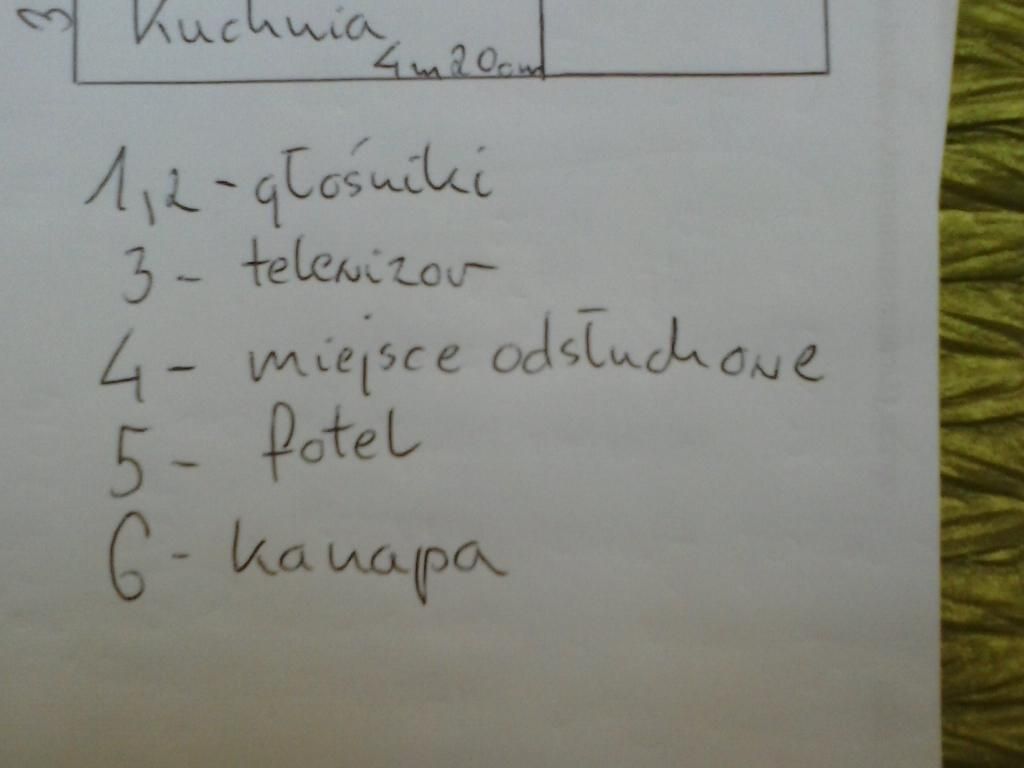 Kuchnia
4m20cm
1,2 - głośniki
3 - telewizor
4 - miejsce odsłuchowe
5 - fotel
6 - kanapa